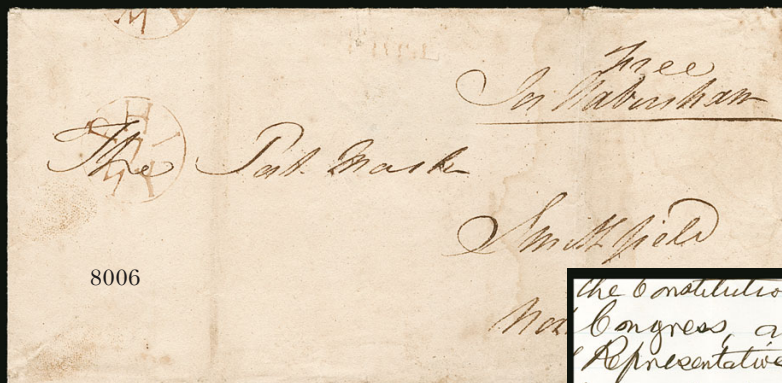 Free
Jos Habersham
The Post Master
Smithfield
8006
the Constitutio
Congress, a
Representative